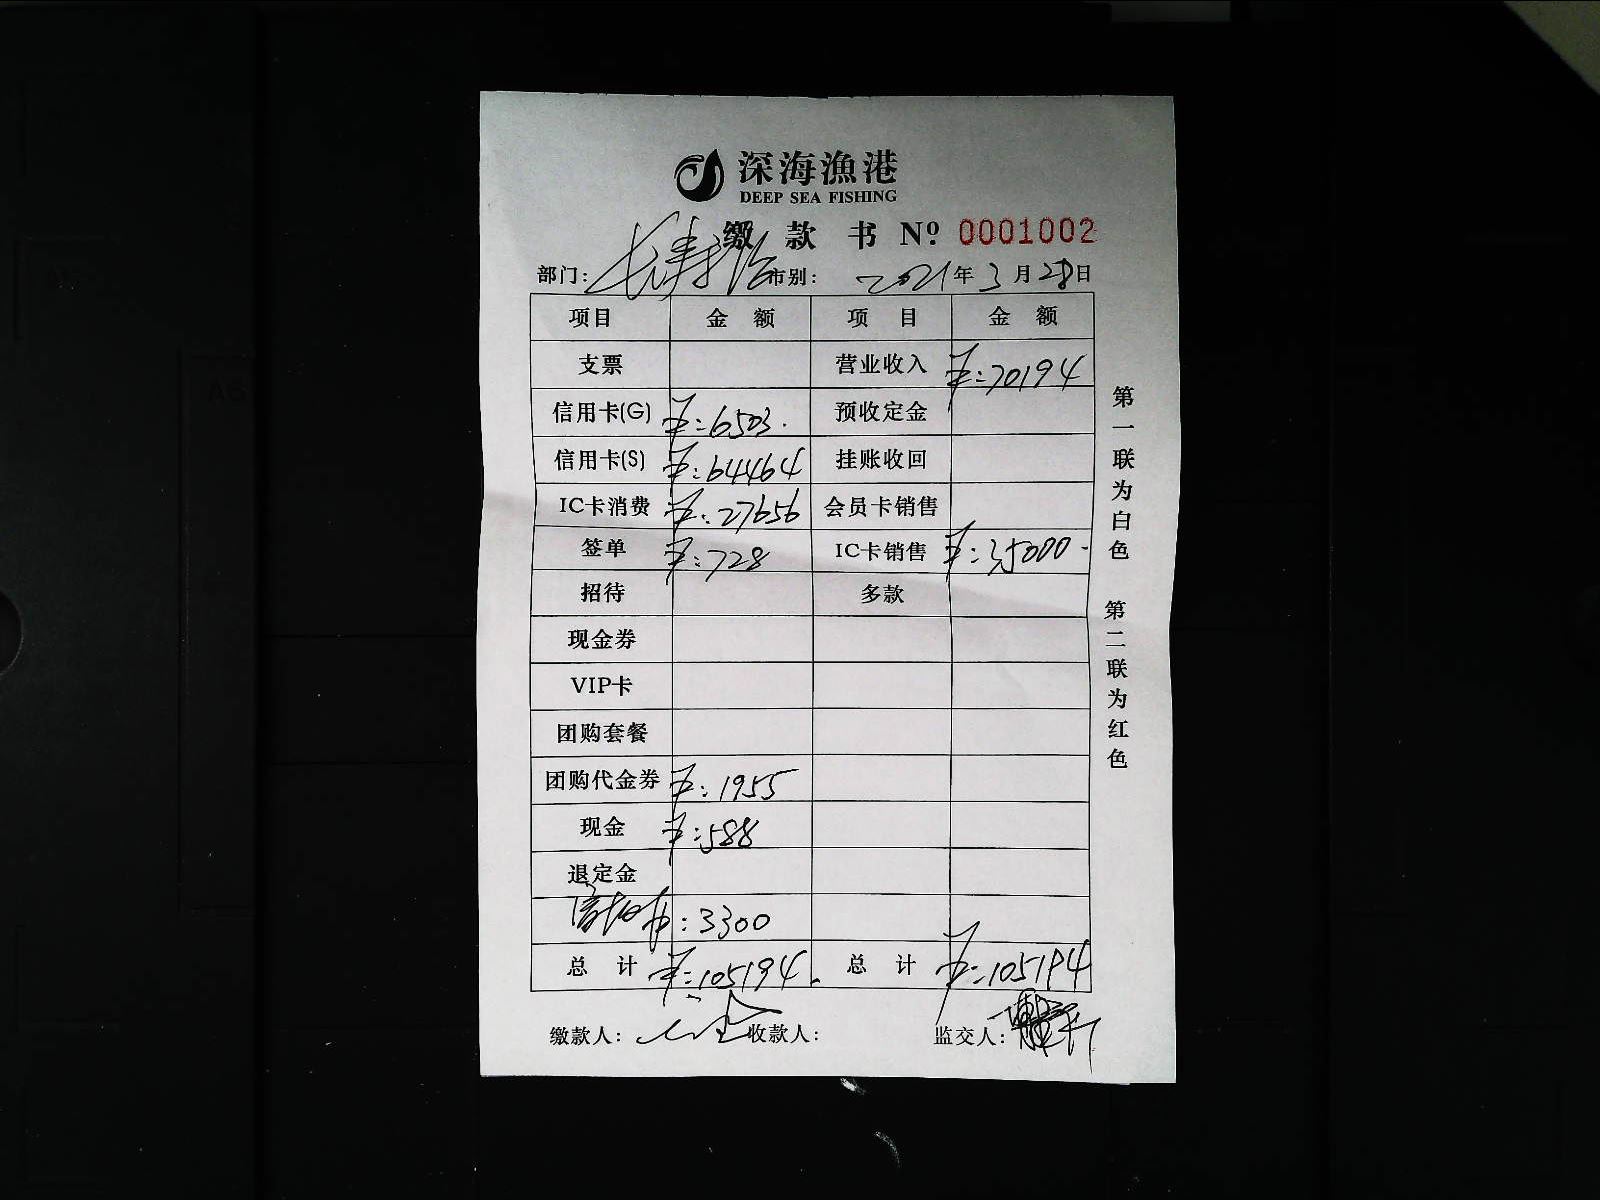 深海漁港
DEEP SEA FISHING
缴款书 Nº 0001002
部门: 长寿路 市别: 2021年3月28日
项目 金额 项目 金额
支票 营业收入 ¥:70194
信用卡(G) ¥:6503. 预收定金
信用卡(S) ¥:64464 挂账收回
IC卡消费 ¥:27656 会员卡销售
签单 ¥:728 IC卡销售 ¥:35000-
招待 多款
现金券
VIP卡
团购套餐
团购代金券 ¥:1955
现金 ¥:588
退定金
¥:3300
总计 ¥:105194. 总计 ¥:105194
缴款人: 收款人: 监交人:
第一联为白色
第二联为红色